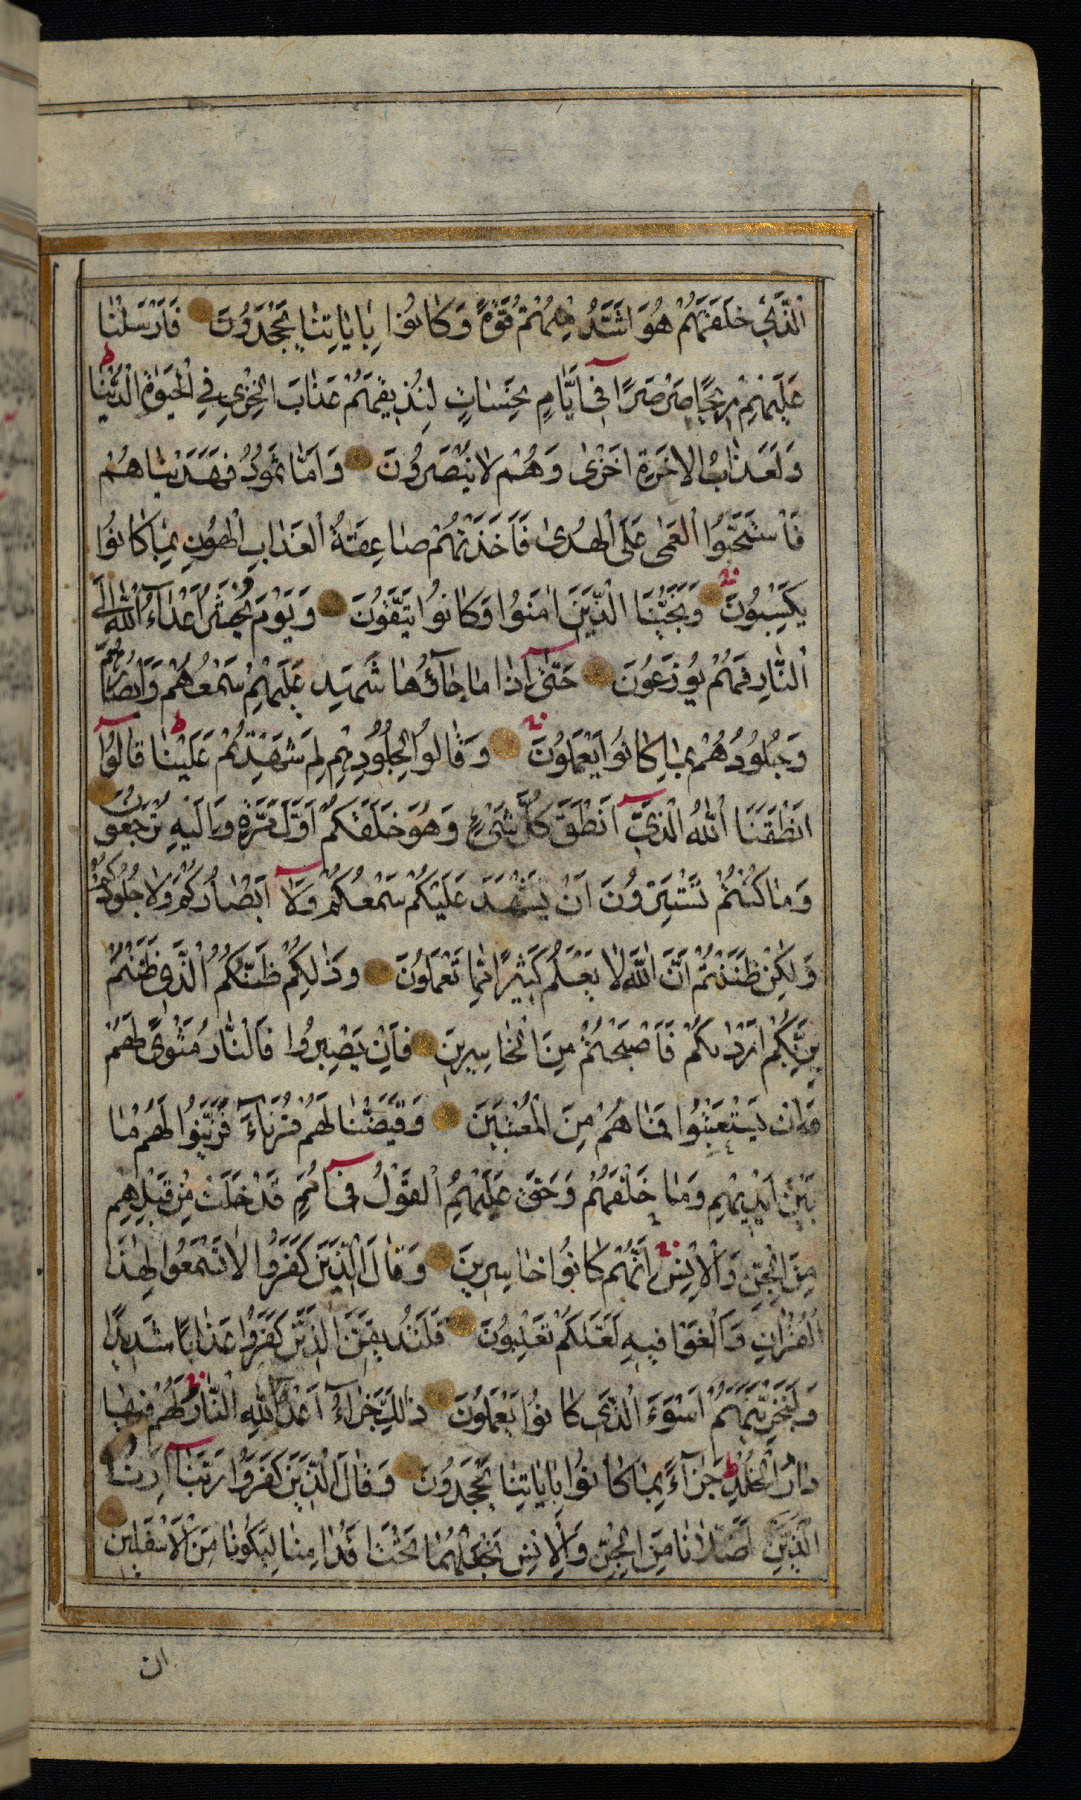 الَّذِي خَلَقَهُمْ هُوَ اَشَدُّ مِنْهُمْ قُوَّةً وَكَانُوا بِاٰيَاتِنَا يَجْحَدُونَ فَاَرْسَلْنَا
عَلَيْهِمْ رِيحًا صَرْصَرًا فِي اَيَّامٍ نَحِسَاتٍ لِنُذِيقَهُمْ عَذَابَ الْخِزْيِ فِي الْحَيٰوةِ الدُّنْيَا
وَلَعَذَابُ الْاٰخِرَةِ اَخْزٰى وَهُمْ لَا يُنْصَرُونَ وَاَمَّا ثَمُودُ فَهَدَيْنَاهُمْ
فَاسْتَحَبُّوا الْعَمٰى عَلَى الْهُدٰى فَاَخَذَتْهُمْ صَاعِقَةُ الْعَذَابِ الْهُونِ بِمَا كَانُوا
يَكْسِبُونَ وَنَجَّيْنَا الَّذِينَ اٰمَنُوا وَكَانُوا يَتَّقُونَ وَيَوْمَ يُحْشَرُ اَعْدَاۤءُ اللّٰهِ اِلَى
النَّارِ فَهُمْ يُوزَعُونَ حَتّٰى اِذَا مَا جَاۤؤُهَا شَهِدَ عَلَيْهِمْ سَمْعُهُمْ وَاَبْصَارُهُمْ
وَجُلُودُهُمْ بِمَا كَانُوا يَعْمَلُونَ وَقَالُوا لِجُلُودِهِمْ لِمَ شَهِدْتُمْ عَلَيْنَا قَالُوا
اَنْطَقَنَا اللّٰهُ الَّذِي اَنْطَقَ كُلَّ شَيْءٍ وَهُوَ خَلَقَكُمْ اَوَّلَ مَرَّةٍ وَاِلَيْهِ تُرْجَعُونَ
وَمَا كُنْتُمْ تَسْتَتِرُونَ اَنْ يَشْهَدَ عَلَيْكُمْ سَمْعُكُمْ وَلَا اَبْصَارُكُمْ وَلَا جُلُودُكُمْ
وَلٰكِنْ ظَنَنْتُمْ اَنَّ اللّٰهَ لَا يَعْلَمُ كَثِيرًا مِمَّا تَعْمَلُونَ وَذٰلِكُمْ ظَنُّكُمُ الَّذِي ظَنَنْتُمْ
بِرَبِّكُمْ اَرْدٰىكُمْ فَاَصْبَحْتُمْ مِنَ الْخَاسِرِينَ فَاِنْ يَصْبِرُوا فَالنَّارُ مَثْوًى لَهُمْ
وَاِنْ يَسْتَعْتِبُوا فَمَا هُمْ مِنَ الْمُعْتَبِينَ وَقَيَّضْنَا لَهُمْ قُرَنَاۤءَ فَزَيَّنُوا لَهُمْ مَا
بَيْنَ اَيْدِيهِمْ وَمَا خَلْفَهُمْ وَحَقَّ عَلَيْهِمُ الْقَوْلُ فِي اُمَمٍ قَدْ خَلَتْ مِنْ قَبْلِهِمْ
مِنَ الْجِنِّ وَالْاِنْسِ اِنَّهُمْ كَانُوا خَاسِرِينَ وَقَالَ الَّذِينَ كَفَرُوا لَا تَسْمَعُوا لِهٰذَا
الْقُرْاٰنِ وَالْغَوْا فِيهِ لَعَلَّكُمْ تَغْلِبُونَ فَلَنُذِيقَنَّ الَّذِينَ كَفَرُوا عَذَابًا شَدِيدًا
وَلَنَجْزِيَنَّهُمْ اَسْوَءَ الَّذِي كَانُوا يَعْمَلُونَ ذٰلِكَ جَزَاۤءُ اَعْدَاۤءِ اللّٰهِ النَّارُ لَهُمْ فِيهَا
دَارُ الْخُلْدِ جَزَاۤءً بِمَا كَانُوا بِاٰيَاتِنَا يَجْحَدُونَ وَقَالَ الَّذِينَ كَفَرُوا رَبَّنَا اَرِنَا
الَّذَيْنِ اَضَلَّانَا مِنَ الْجِنِّ وَالْاِنْسِ نَجْعَلْهُمَا تَحْتَ اَقْدَامِنَا لِيَكُونَا مِنَ الْاَسْفَلِينَ
ان